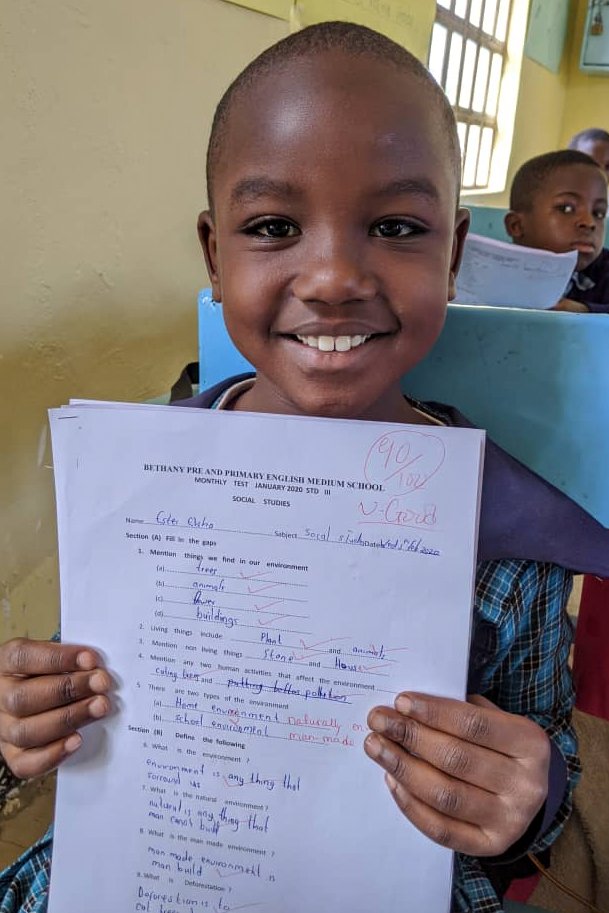 90/100
V-Good
BETHANY PRE AND PRIMARY ENGLISH MEDIUM SCHOOL
MONTHLY TEST JANUARY 2020 STD III
SOCIAL STUDIES
Name Ester Elisha Subject Social study Date
Section (A) Fill in the gaps
1. Mention things we find in our environment
(a) trees
(b) animals
(c)
(d) buildings
2. Living things include Plant and animals
3. Mention non living things Stone and House
4. Mention any two human activities that affect the environment
cuting trees and putting bottes pollution
5. There are two types of the environment
(a) Home environment naturally en
(b) school environment man made
Section (B) Define the following
6. What is the environment ?
environment is any thing that
sorround us
7. What is the natural environment ?
natural is any thing that
man can't built
8. What is the man made environment ?
man made environment is
man build
9. What is Deforestation ?
Deforestion is to
cut trees